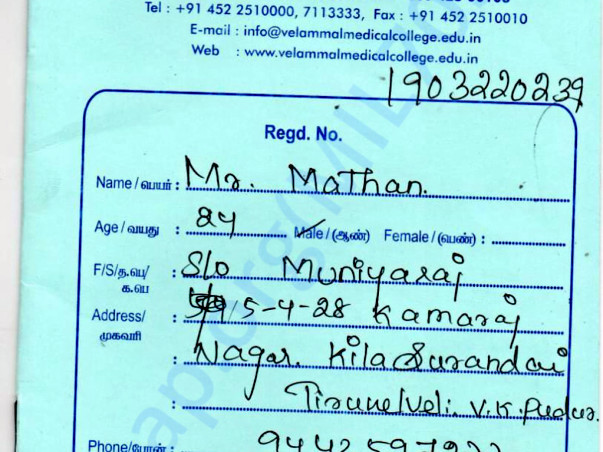 Tel : +91 452 2510000, 7113333, Fax : +91 452 2510010
E-mail : info@velammalmedicalcollege.edu.in
Web : www.velammalmedicalcollege.edu.in
1903220239
Regd. No.
Name / பெயர் : Mr. Mathan.
Age / வயது : 24 Male / (ஆண்) Female / (பெண்) :
F/S/த.பெ/ : S/o Muniyaraj
க.பெ
Address/ : 5-4-28 Kamaraj
முகவரி
: Nagar. Kila Surandai
: Tirunelveli. V.K. Pudur.
Phone/போன் :